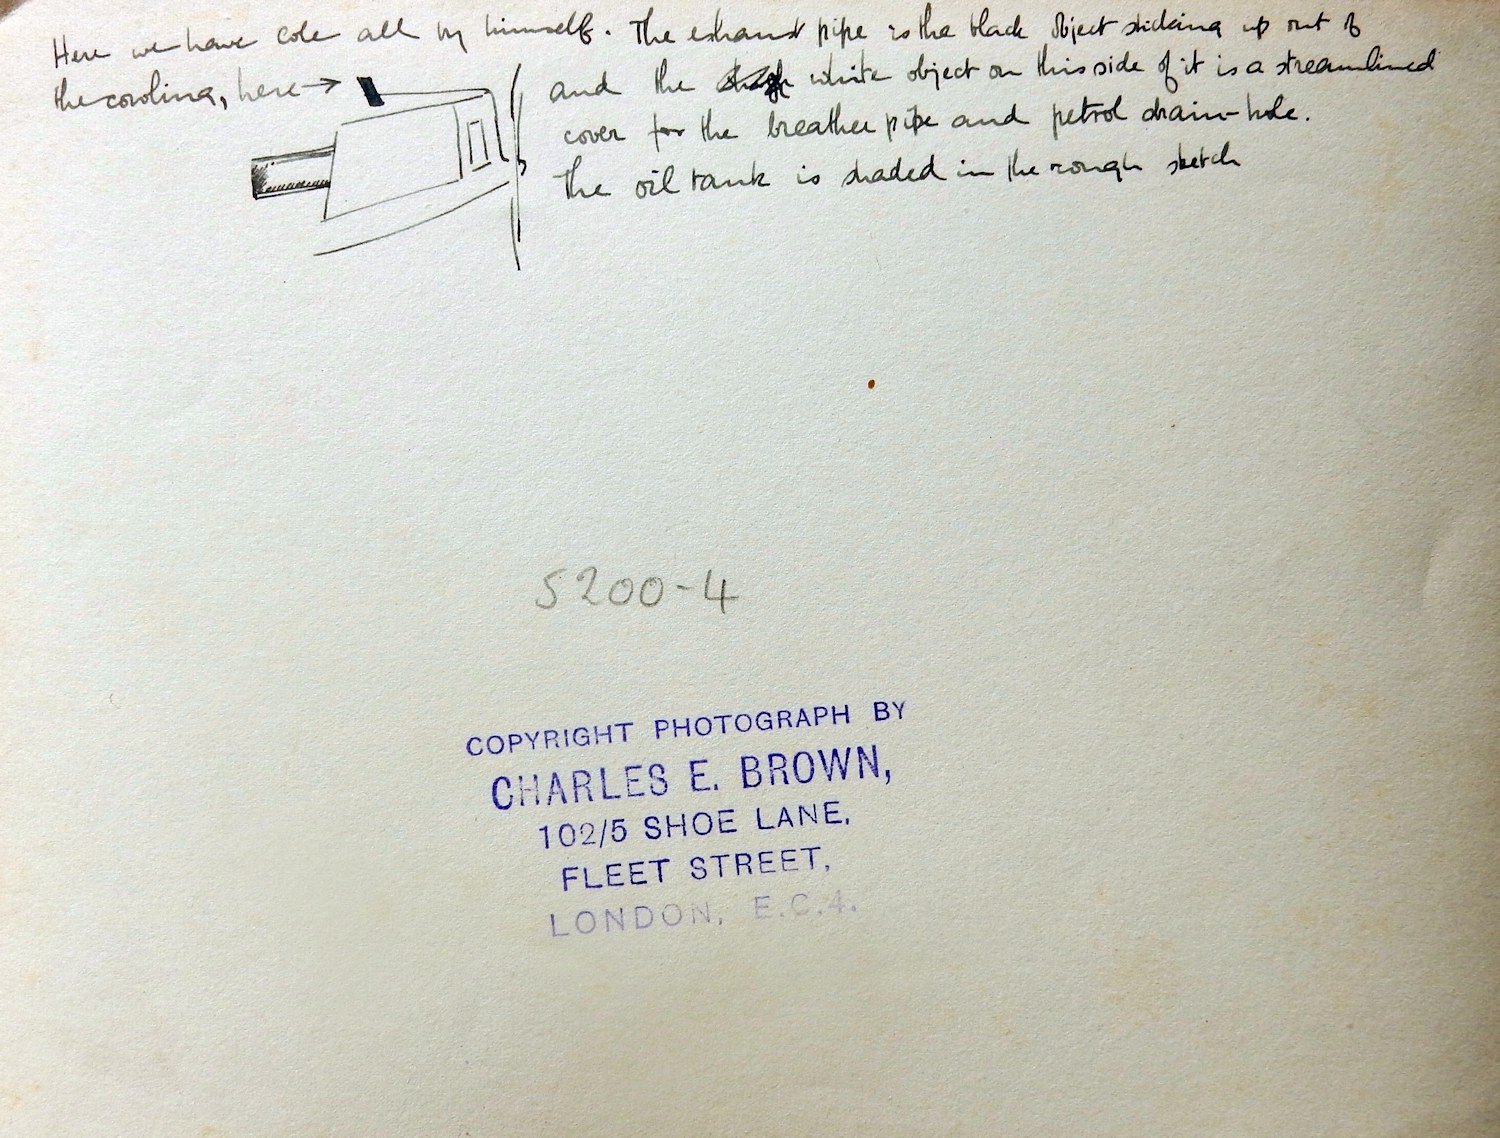 Here we have Cole all by himself. The exhaust pipe is the black object sticking up out of
the cowling, here → and the white object on this side of it is a streamlined
cover for the breather pipe and petrol drain-hole.
The oil tank is shaded in the rough sketch
5200-4
COPYRIGHT PHOTOGRAPH BY
CHARLES E. BROWN,
102/5 SHOE LANE,
FLEET STREET,
LONDON, E.C.4.